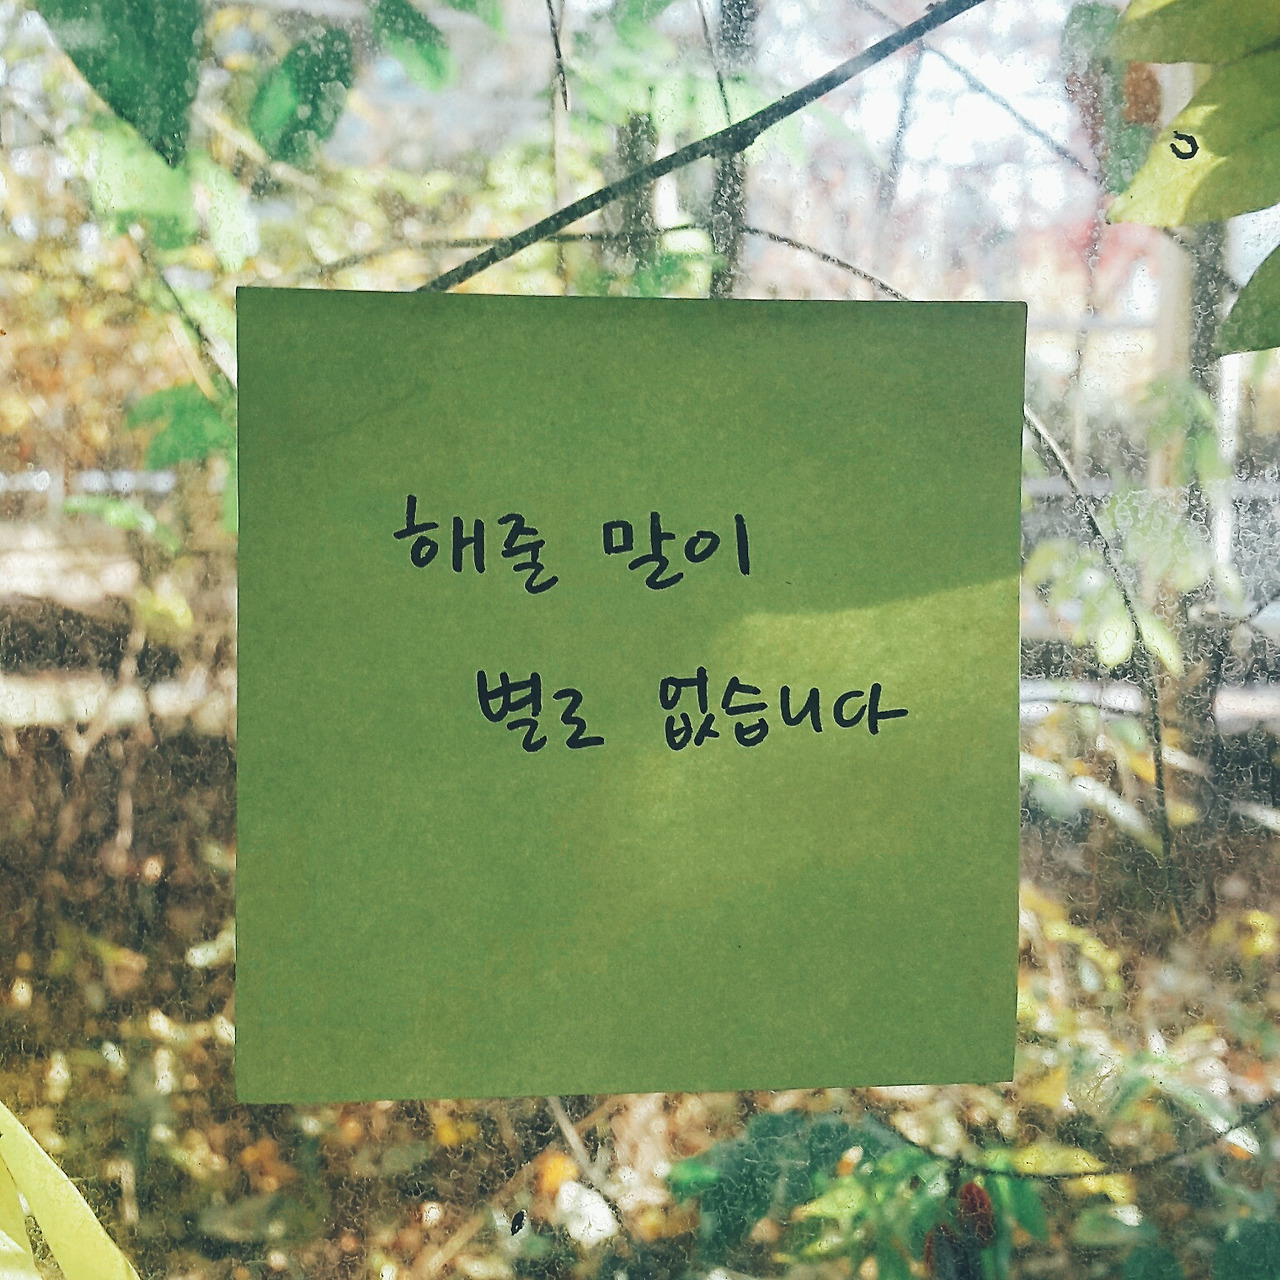 해줄 말이
별로 없습니다